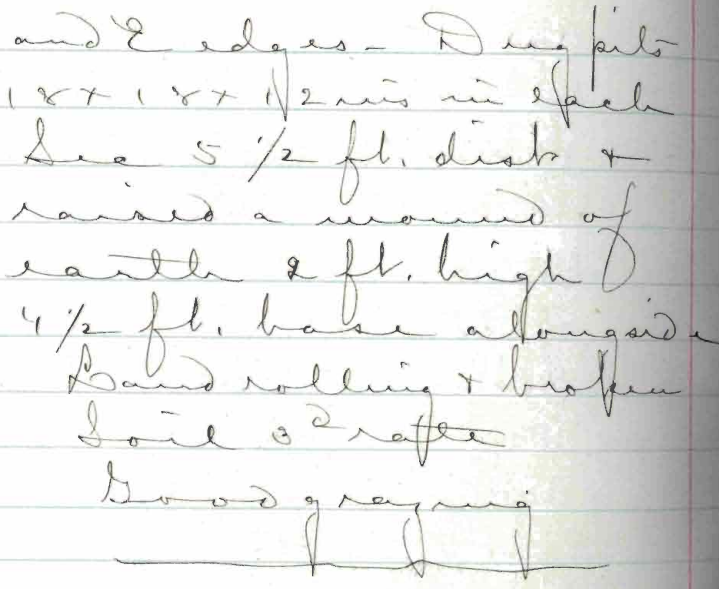 and E edges - Dug pits
18 x 18 x 12 ins in each
Sec 5 1/2 ft. dist &
raised a mound of
earth 2 ft. high
4 1/2 ft. base alongside
Land rolling & broken
Soil 3d rate
Good grazing